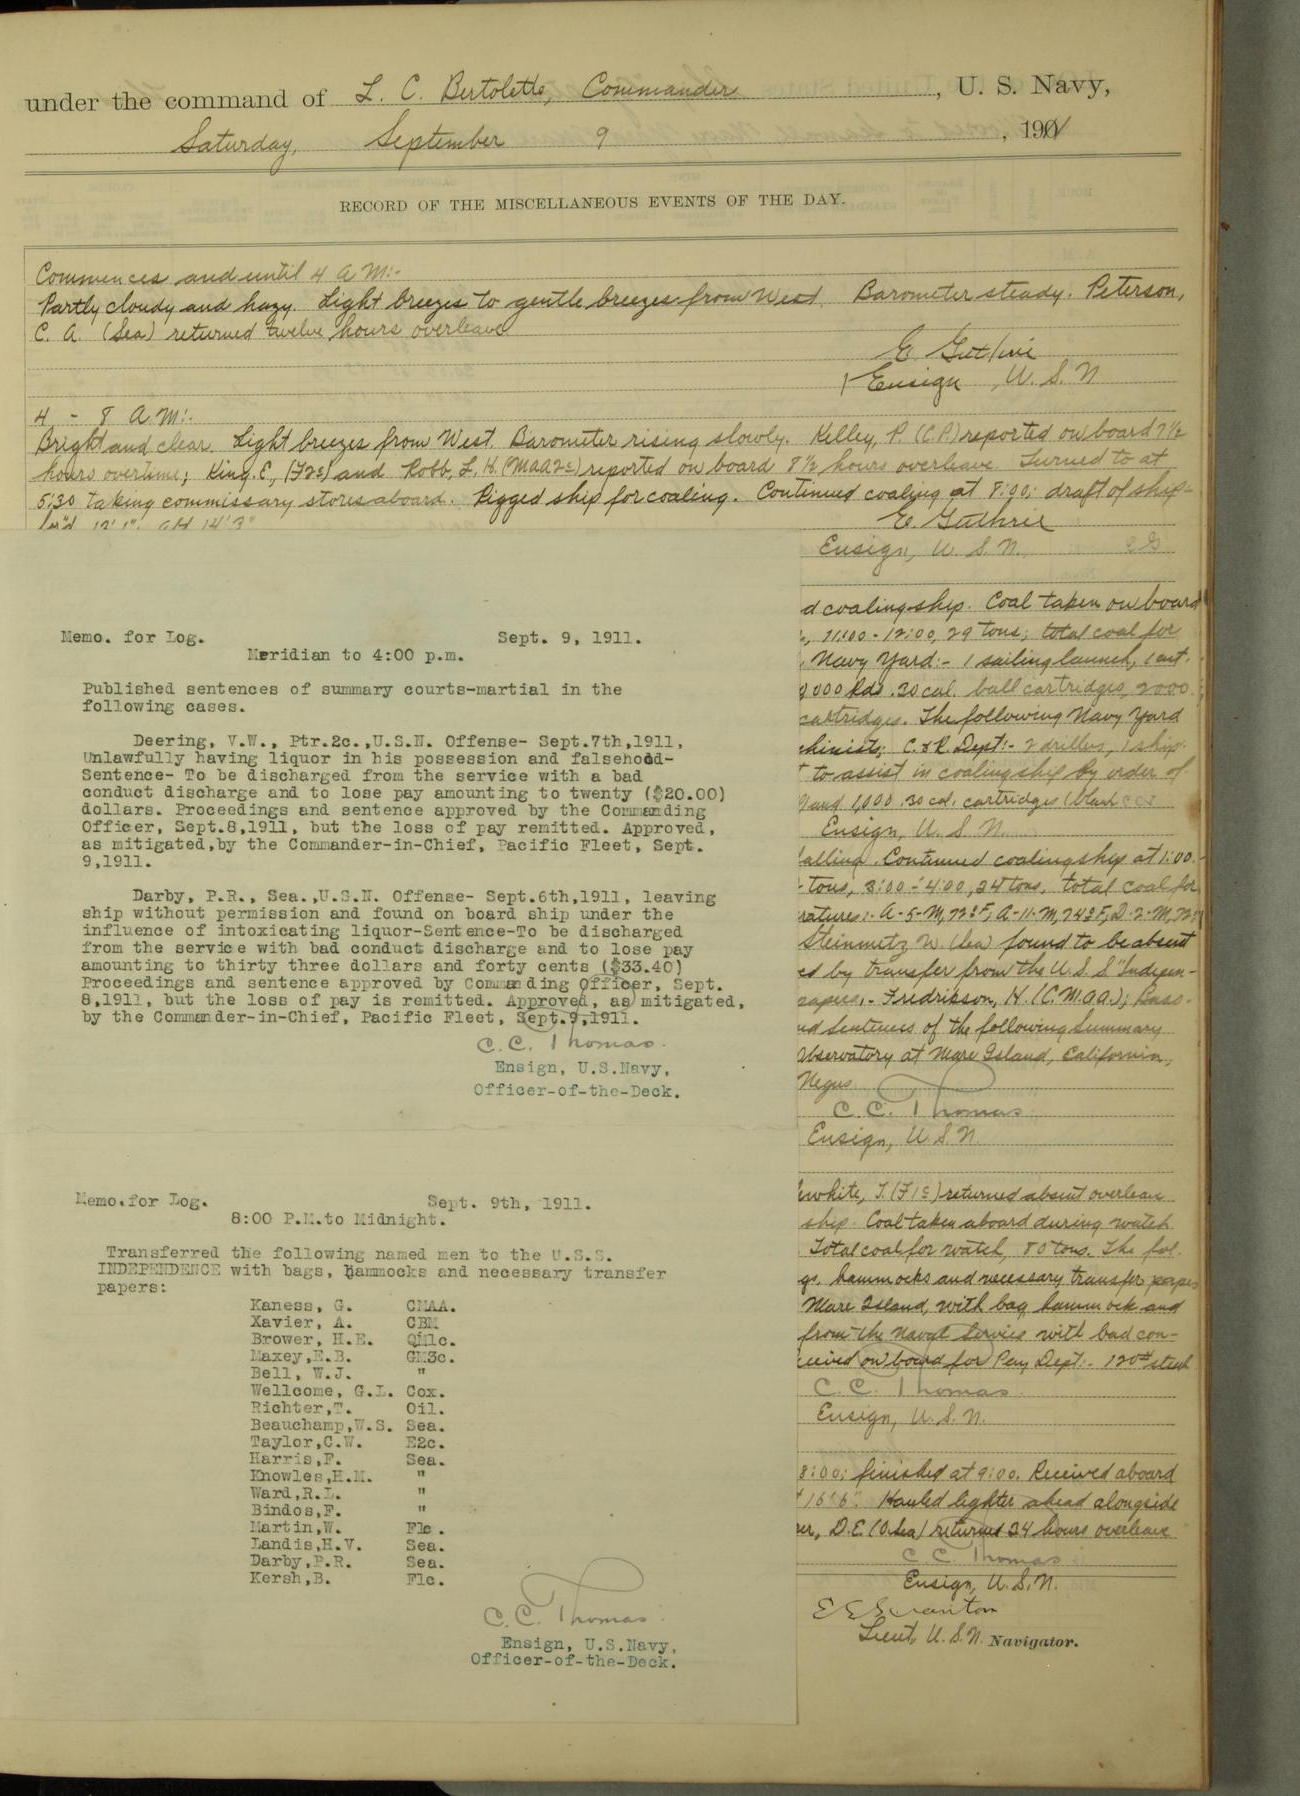 under the command of L. C. Bertolette, Commander, U. S. Navy,
Saturday, September 9, 1901
RECORD OF THE MISCELLANEOUS EVENTS OF THE DAY.
Commences and until 4 A.M:-
Partly cloudy and hazy. Light breezes to gentle breezes from West. Barometer steady. Peterson,
C. A. (Sea) returned twelve hours overleave
E. Guthrie
Ensign, U. S. N
4 - 8 A.M:-
Bright and clear. Light breezes from West. Barometer rising slowly. Kelley, P. (C.P.) reported on board 7 1/2
hours overtime; King, E, (F2c) and Robb, L. H. (MAA2c) reported on board 8 1/2 hours overleave. Turned to at
5:30 taking commissary stores aboard. Rigged ship for coaling. Continued coaling at 8:00; draft of ship-
for'd 12' 1"; aft 14' 3"
E. Guthrie
Ensign, U. S. N.
Memo. for Log. Sept. 9, 1911.
Meridian to 4:00 p.m.
Published sentences of summary courts-martial in the
following cases.
Deering, V.W., Ptr.2c.,U.S.N. Offense- Sept.7th,1911,
Unlawfully having liquor in his possession and falsehood-
Sentence- To be discharged from the service with a bad
conduct discharge and to lose pay amounting to twenty ($20.00)
dollars. Proceedings and sentence approved by the Commanding
Officer, Sept.8,1911, but the loss of pay remitted. Approved,
as mitigated,by the Commander-in-Chief, Pacific Fleet, Sept.
9,1911.
Darby, P.R., Sea.,U.S.N. Offense- Sept.6th,1911, leaving
ship without permission and found on board ship under the
influence of intoxicating liquor-Sentence-To be discharged
from the service with bad conduct discharge and to lose pay
amounting to thirty three dollars and forty cents ($33.40)
Proceedings and sentence approved by Commanding Officer, Sept.
8,1911, but the loss of pay is remitted. Approved, as mitigated,
by the Commander-in-Chief, Pacific Fleet, Sept.9,1911.
C. C. Thomas.
Ensign, U.S.Navy,
Officer-of-the-Deck.
Memo.for Log. Sept. 9th, 1911.
8:00 P.M.to Midnight.
Transferred the following named men to the U.S.S.
INDEPENDENCE with bags, hammocks and necessary transfer
papers:
Kaness, G. CMAA.
Xavier, A. CBM
Brower, H.E. QM1c.
Maxey,E.B. GM3c.
Bell, W.J. "
Wellcome, G.L. Cox.
Richter,T. Oil.
Beauchamp,W.S. Sea.
Taylor,C.W. E2c.
Harris,F. Sea.
Knowles,H.M. "
Ward,R.L. "
Bindos,F. "
Martin,W. F1c.
Landis,H.V. Sea.
Darby,P.R. Sea.
Kersh,B. F1c.
C. C. Thomas.
Ensign, U.S.Navy,
Officer-of-the-Deck.
d coaling ship. Coal taken on board
11:00 - 12:00, 29 tons; total coal for
Navy Yard:- 1 sailing launch, 1 cut.
000 Rds .30 cal. ball cartridges, 2000
cartridges. The following Navy Yard
chinists; C.&R. Dept:- 2 drillers, 1 ship
to assist in coaling ship by order of
and 1,000 .30 cal. cartridges (blank
Ensign, U. S. N.
falling. Continued coaling ship at 1:00.
tons, 3:00 - 4:00, 24 tons, total coal for
ratures:- A-5-M, 72°F, A-11-M, 74°F, D-2-M, 72°
Steinmetz W. (Sea) found to be absent
ed by transfer from the U. S. S. "Indepen-
papers,- Fredrikson, H. (C.M.A.A.); Bass-
nd sentences of the following Summary
Observatory at Mare Island, California,
Negus
C. C. Thomas
Ensign, U. S. N.
white, T. (F1c) returned absent overleave
ship. Coal taken aboard during watch
Total coal for watch, 80 tons. The fol-
gs, hammocks and necessary transfer papers
Mare Island, with bag, hammock and
from the Naval Service with bad con-
ceived on board for Pay Dept:- 120# steak
C. C. Thomas.
Ensign, U. S. N.
8:00; finished at 9:00. Received aboard
16' 6". Hauled lighter ahead alongside
er, D. E. (O.Sea) returned 24 hours overleave
C. C. Thomas
Ensign, U. S. N.
E E Scranton
Lieut, U. S. N. Navigator.